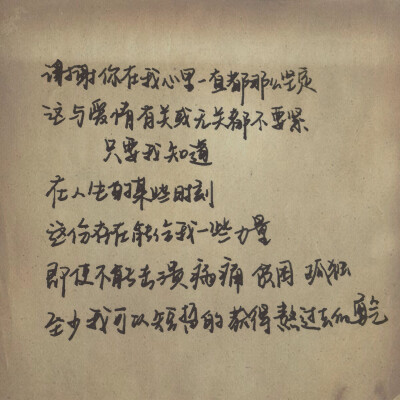 谢谢你在我心里一直都那么坚贞
这与爱情有关或无关都不要紧
只要我知道
在人生的某些时刻
这份存在能给我一些力量
即使不能击溃病痛 贫困 孤独
至少我可以短暂的获得熬过去的勇气